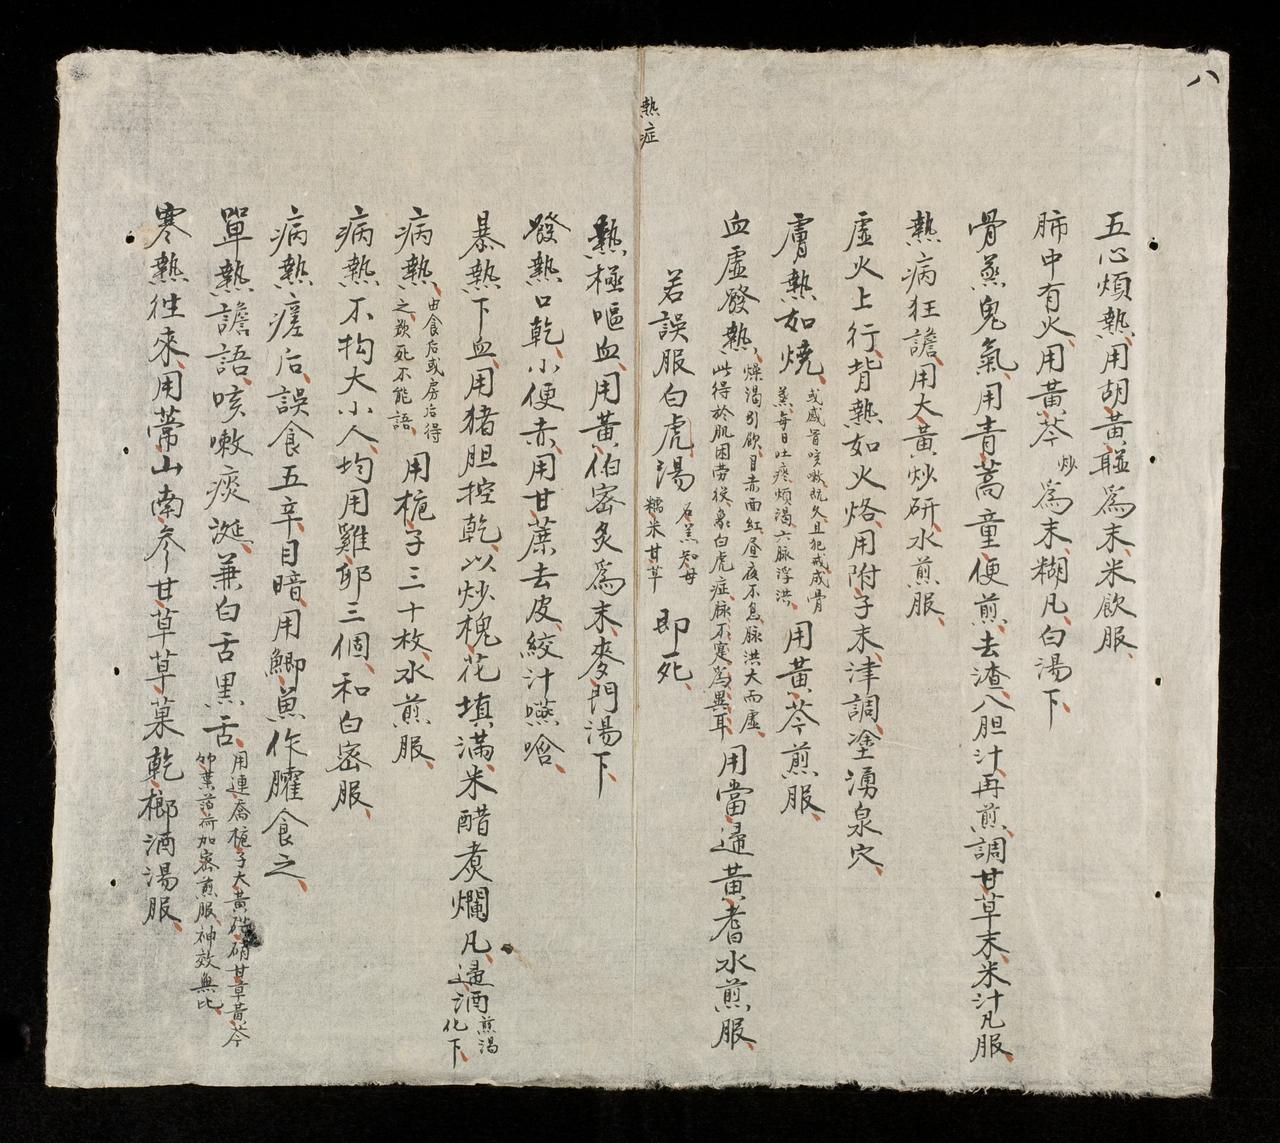 八
五心煩熱、用胡黃聯爲末、米飲服、
肺中有火、用黃芩炒爲末、糊凡、白湯下、
骨蒸鬼氣、用青蒿童便煎、去渣、八胆汁、再煎、調甘草末、米汁凡服、
熱病狂譫、用大黃炒研、水煎服、
虛火上行、背熱如火烙、用附子末、津調塗湧泉穴、
膚熱如燒、或感冒咳嗽既久且犯戒成骨蒸每日吐痰煩渴六脉浮洪、用黃芩煎服、
血虛發熱、燥渴引飲目赤面紅昼夜不息脉洪大而虛、此得於肌困劳役象白虎症脉不寔爲異耳、用當歸黃耆水煎服、
若誤服白虎湯石羔知母糯米甘草即死、
熱症
熱極嘔血、用黃伯密炙爲末、麥門湯下、
發熱口乾、小便赤、用甘蔗去皮、絞汁嚥、
暴熱下血、用猪胆控乾、以炒槐花填滿、米醋煮爛凡、歸酒煎湯化下、
病熱、由食后或房后得之、欲死不能語、用梔子三十枚水煎服、
病熱不拘大小人、均用雞卵三個、和白密服、
病熱瘥后誤食五辛、目暗、用鯽魚作臛食之、
單熱譫語、咳嗽痰涎、兼白舌黑舌、用連喬梔子大黃硝甘草黃芩竹葉薄荷加密煎服、神效無比、
寒熱徃來、用常山南參甘草草菓乾榔酒湯服、